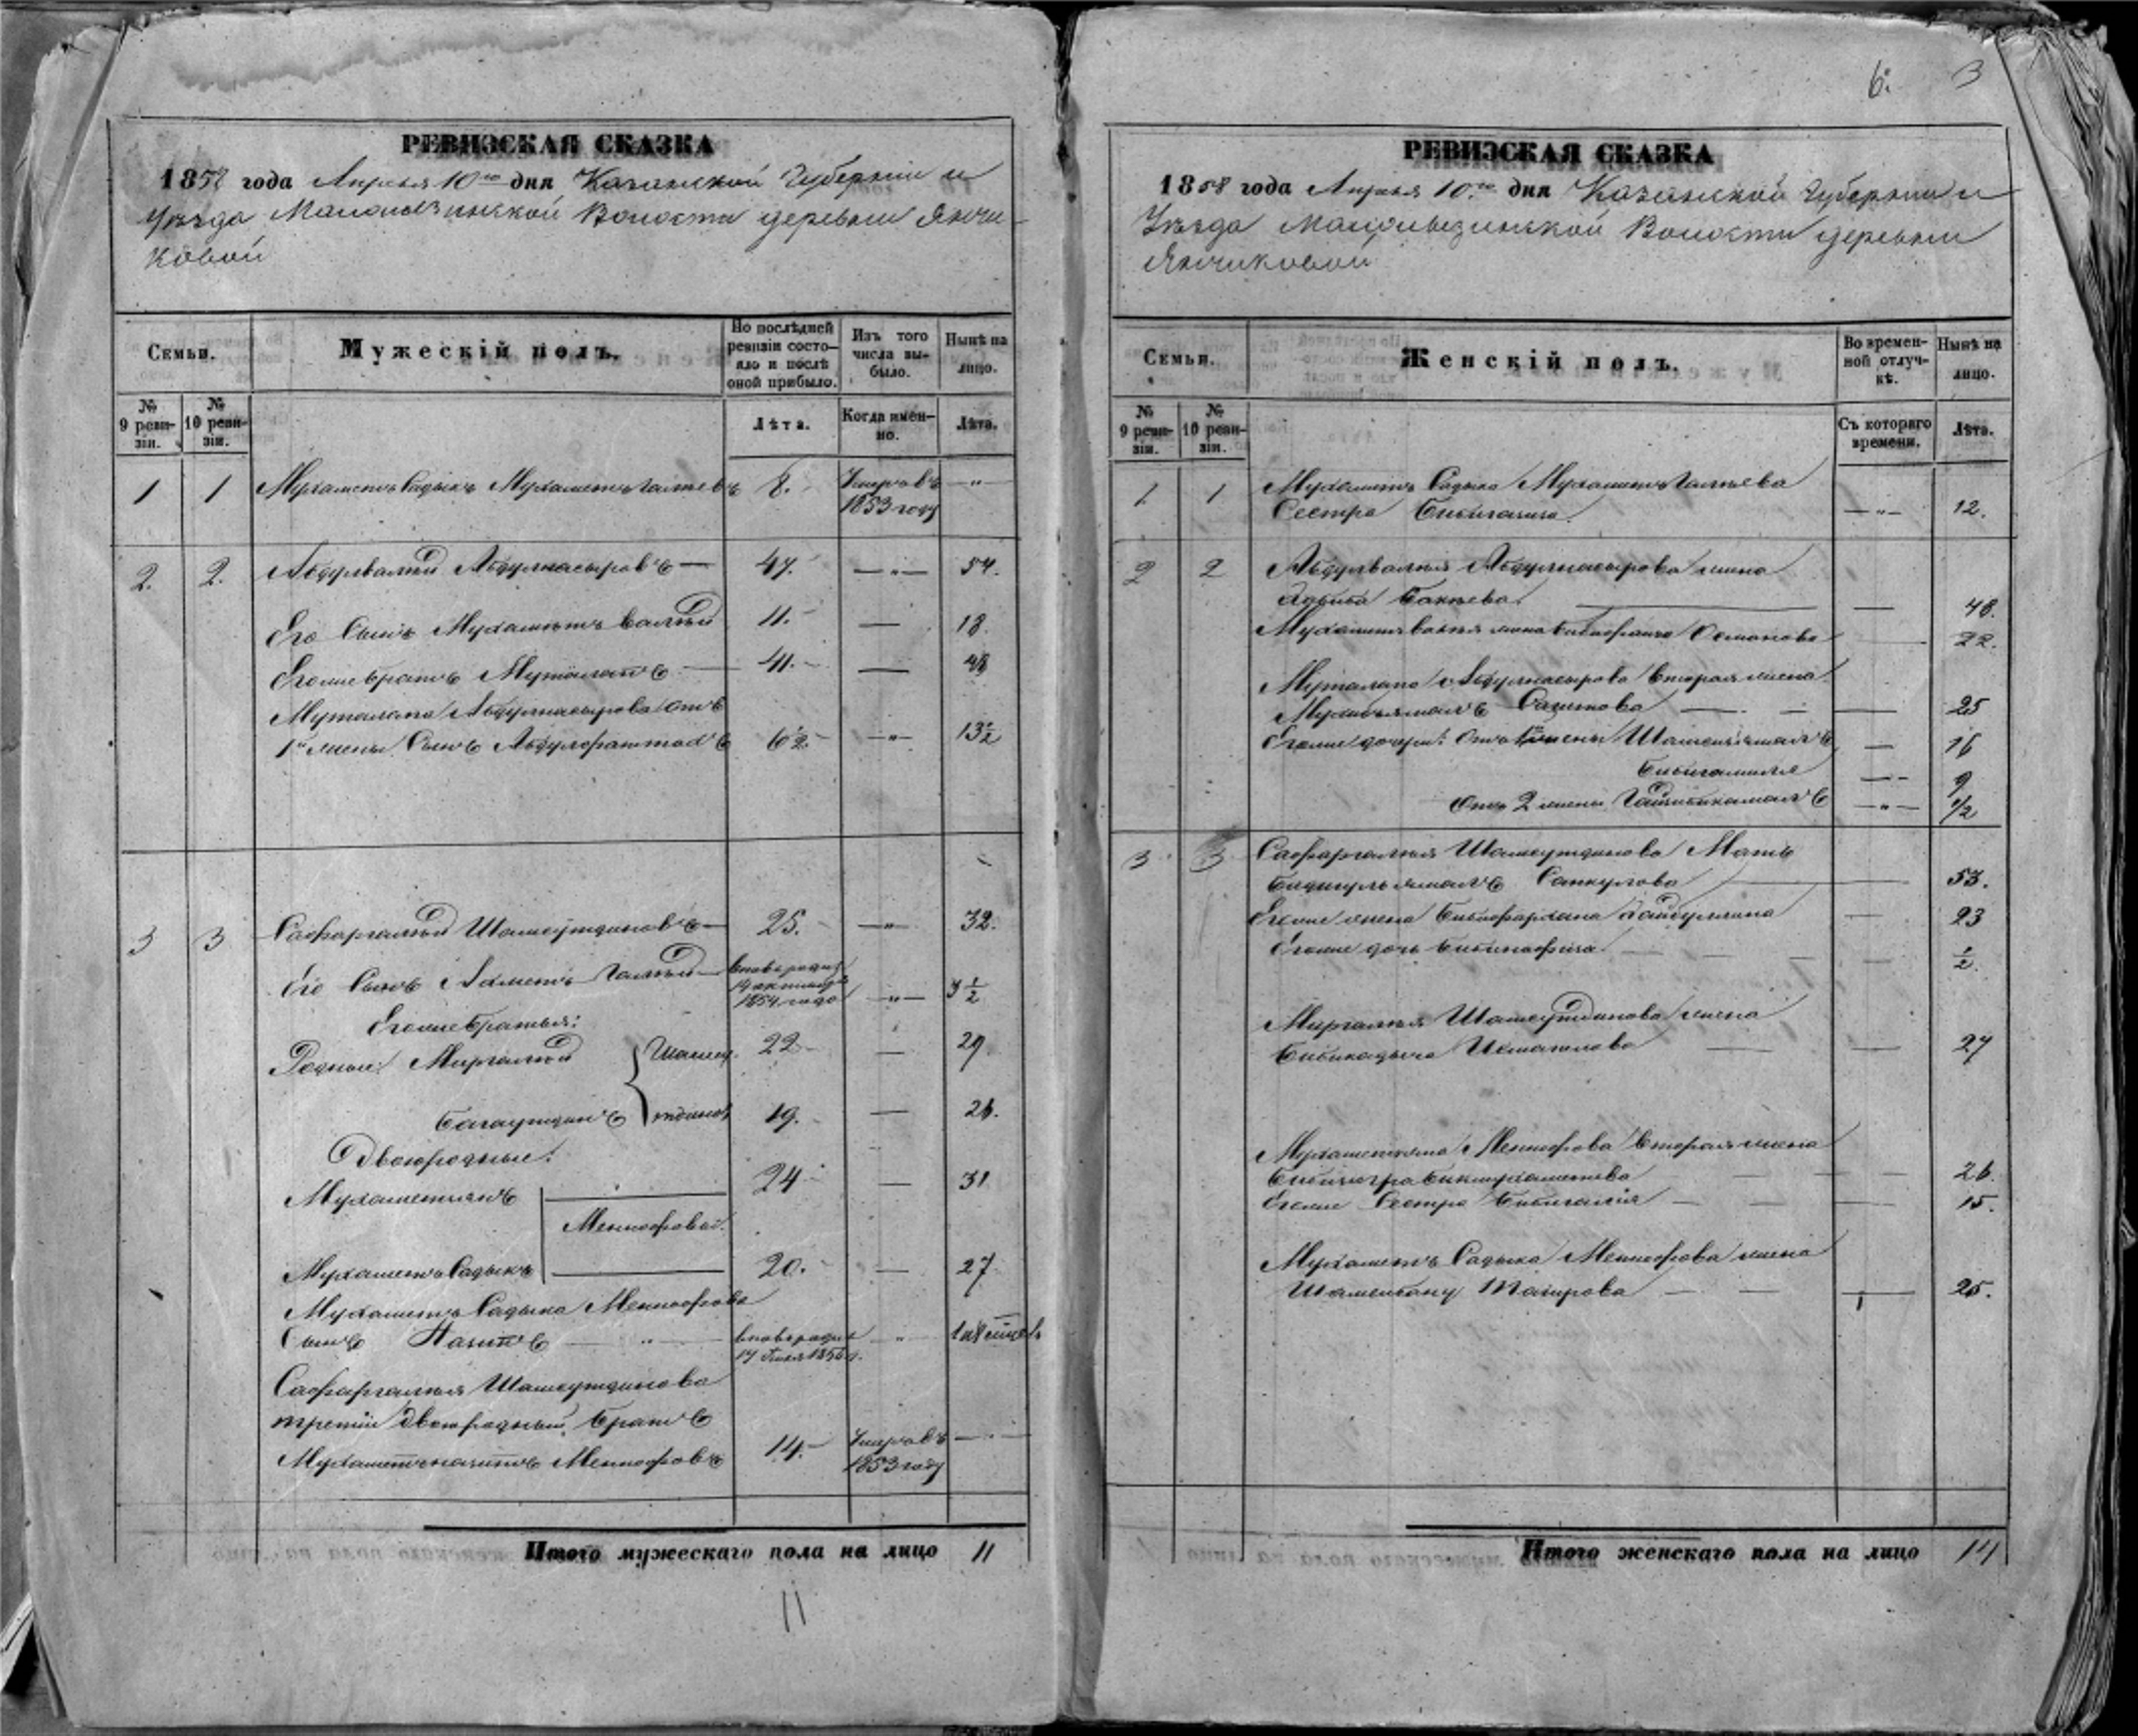 РЕВИЗСКАЯ СКАЗКА
1858 года Апреля 10го дня Казанской Губернии и
Уѣзда Мамолызинской Волости деревни Янчи-
ковой
Семьи.
Мужескій полъ.
По послѣдней ревизіи состо-яло и послѣ оной прибыло.
Изъ того числа вы-было.
Нынѣ на лицо.
№ 9 реви-зіи.
№ 10 реви-зіи.
Лѣта.
Когда имен-но.
Лѣта.
1 1 Мухаметъ Садыкъ Мухаметъ Галѣевъ 8. Умръ въ —„—
1853 году
2. 2. Абдулвалѣй Абдулнасыровъ — 47. —„— 54.
Его Сынъ Мухаметъ валѣй 11. — 18.
Егоже братъ Муталапъ — 41. — 48
Муталапа Абдулнасырова отъ
1й жены Сынъ Абдулфаттахъ 6 2 —„— 13 1/2
3 3 Сафаргалѣй Шамсутдиновъ — 25. —„— 32.
Его Сынъ Ахметъ Галѣй — вновь родил.
19 октября
1854 года —„— 3 1/2
Егоже братья:
Родные: Миргалѣй Шамсу- 22 — 29
Багаутдинъ тдиновы 19. — 26.
Двоюродные:
Мухаметзянъ 24 — 31
Менасфовы
Мухаметъ Садыкъ 20. — 27
Мухаметъ Садыка Менасфова
Сынъ Назипъ —„— вновь родил. „
17 1856 г.
Сафаргалѣя Шамсутдинова
третій двоюродный братъ
Мухаметъ назипъ Менасфовъ 14. Умръ въ —„—
1853 году
Итого мужескаго пола на лицо 11
11
6. 3
РЕВИЗСКАЯ СКАЗКА
1858 года Апреля 10го дня Казанской Губернии и
Уѣзда Мамолызинской Волости деревни
Янчиковой
Семьи.
Женскій полъ.
Во времен-ной отлуч-кѣ.
Нынѣ на лицо.
№ 9 реви-зіи.
№ 10 реви-зіи.
Съ котораго времени.
Лѣта.
1 1 Мухаметъ Садыка Мухаметъ Галѣева
Сестра —„— 12.
2 2 Абдулвалѣя Абдулнасырова жена
Бакѣева — 48.
Мухаметъ валѣя жена Османова 22.
Муталапа Абдулнасырова вторая жена
— — 25
Егоже дочери: отъ 1й жены — 16
Бибигамиля —„— 9
Отъ 2 жены —„— 1/2
3 3 Сафаргалѣя Шамсутдинова Мать
— 53.
Егоже жена — 23
Егоже дочь Бибинафиса — 1/2
Миргалѣя Шамсутдинова жена
Исмагилова — 27
Мухаметзяна Менасфова вторая жена
Бикмухаметева — 26.
Егоже Сестра Бибигалія — 15.
Мухаметъ Садыка Менасфова жена
Шамсибану Таирова — 25.
Итого женскаго пола на лицо 14